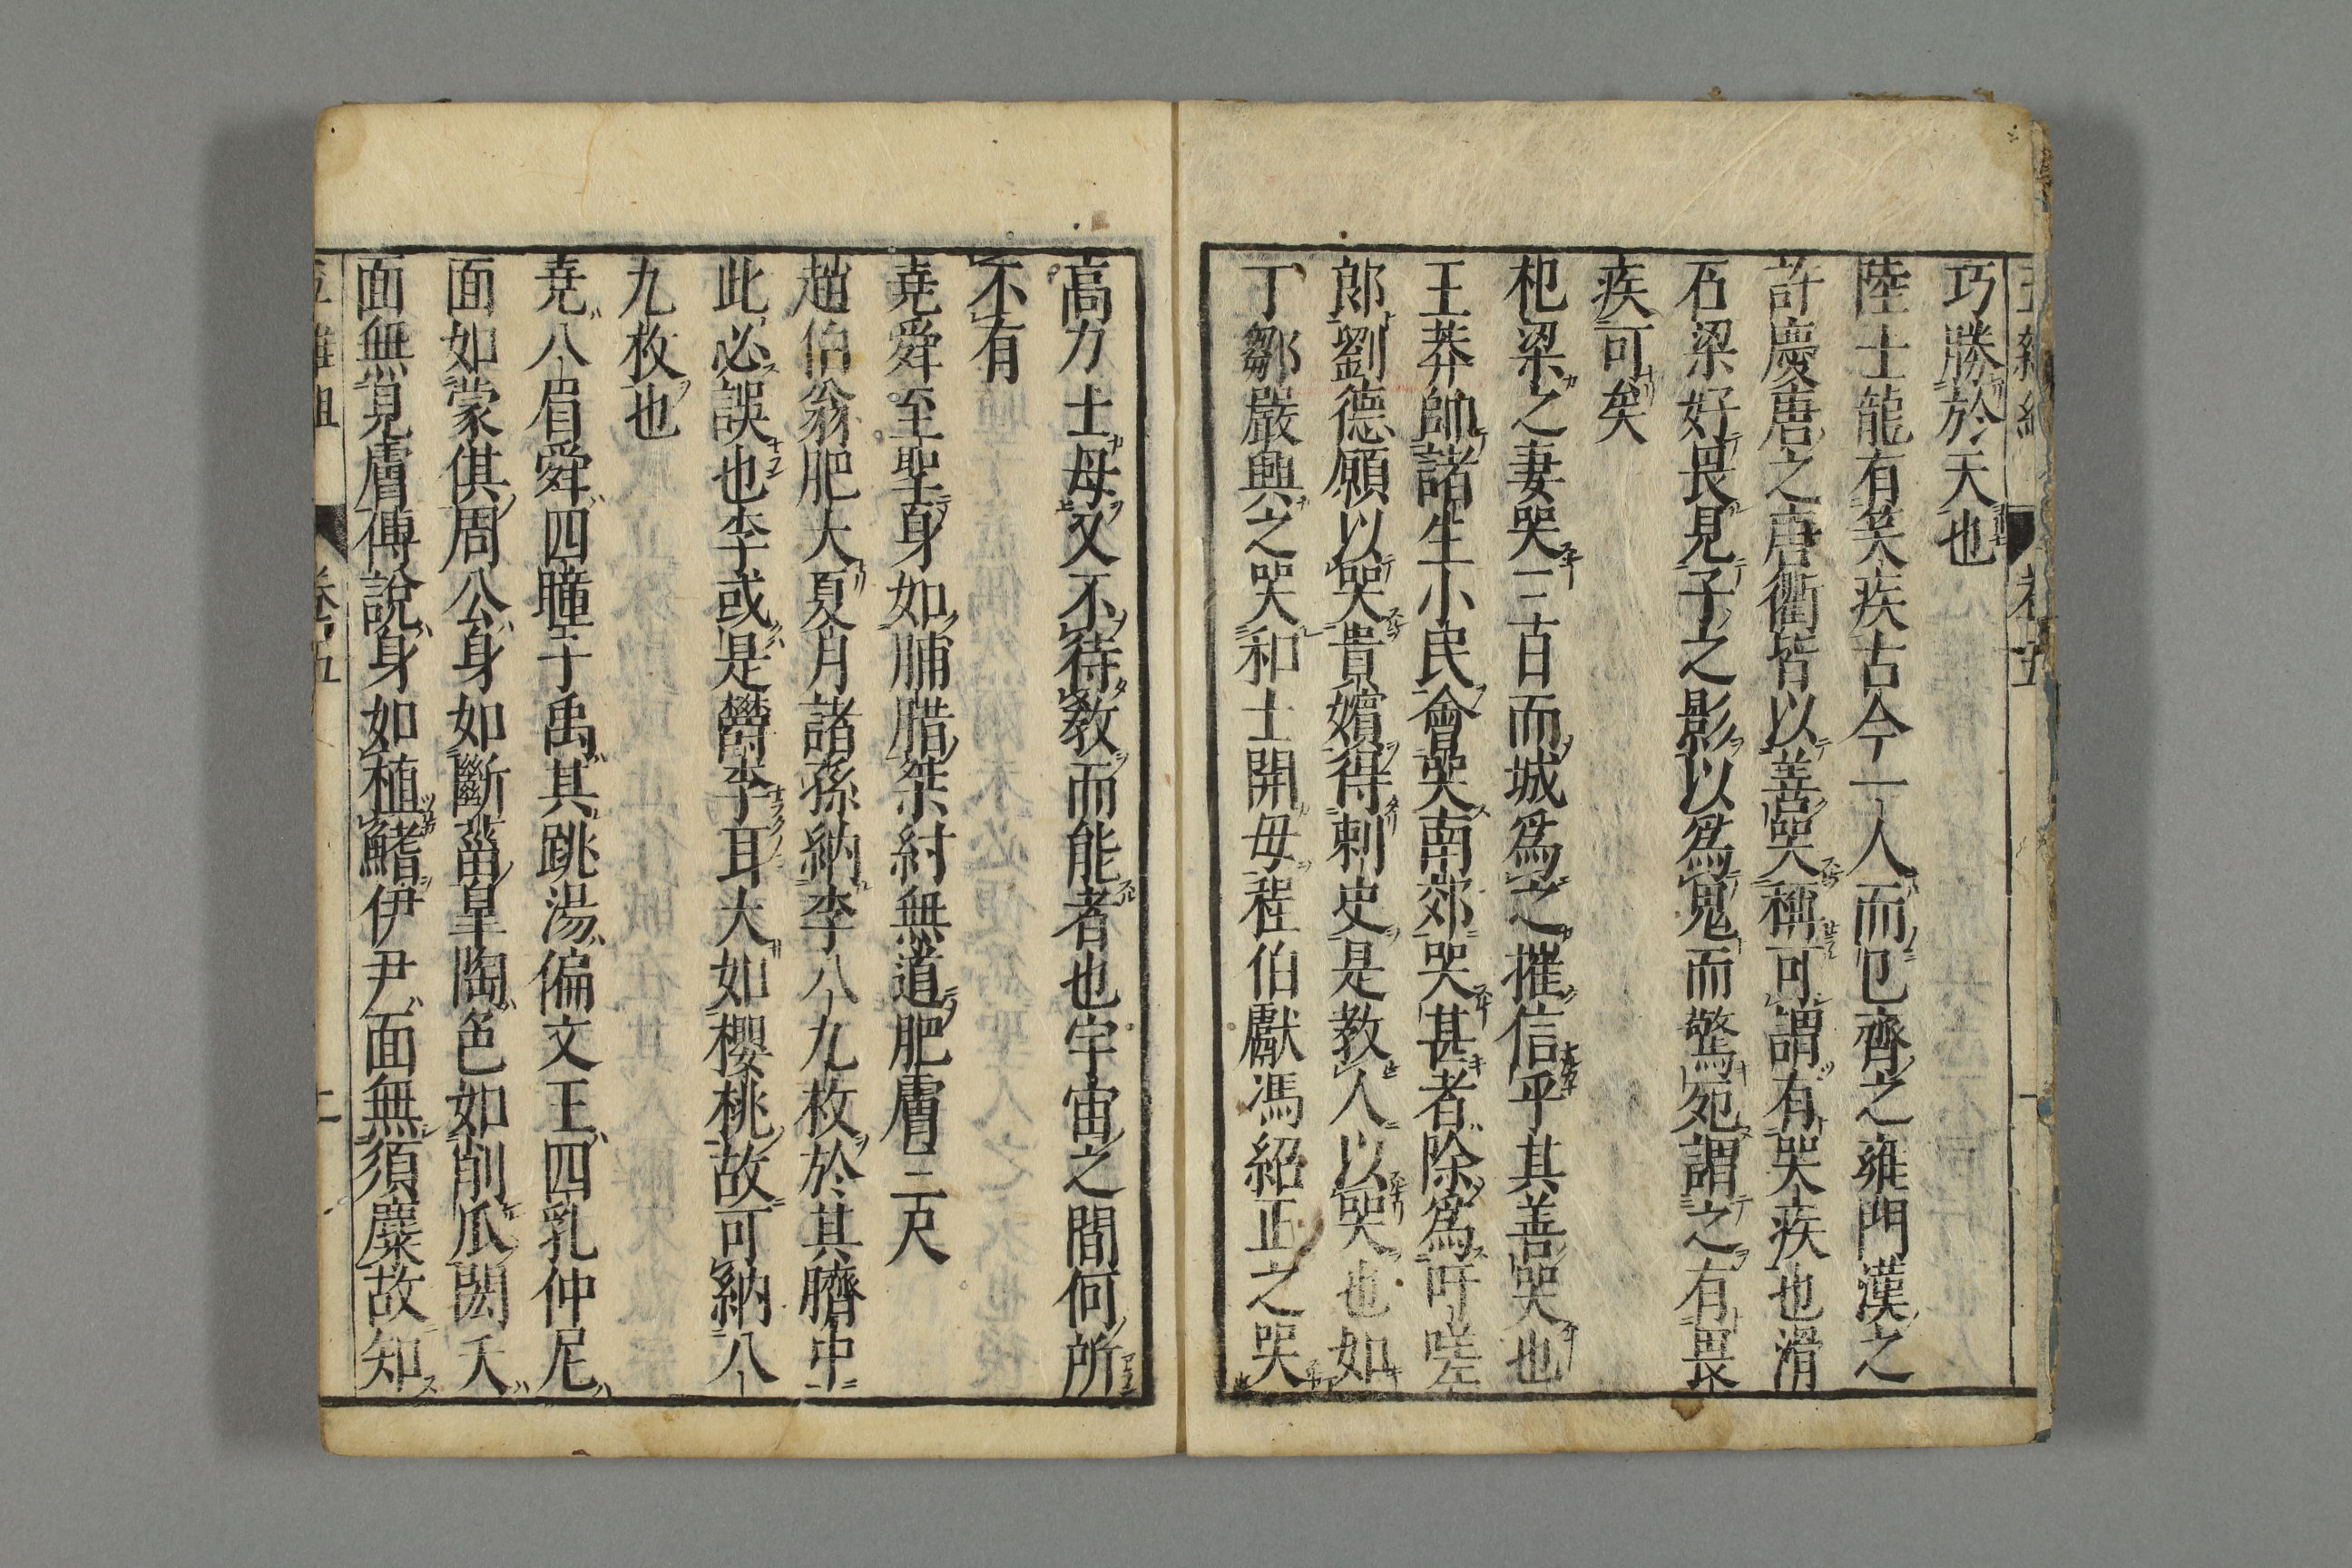 巧勝於天也
陸士龍有笑疾古今一人而已齊之雍門漢之
許慶唐之唐衢皆以善哭稱可謂有哭疾也滑
石梁好畏見子之影以爲鬼而驚宛謂之有畏
疾可矣
杞梁之妻哭三百而城爲之摧信乎其善哭也
王莽帥諸生小民會哭南郊哭甚者除爲吁嗟
郎劉德願以哭貴嬪得刺史是教人以哭也如
丁鄒嚴興之哭和士開母程伯獻馮紹正之哭
高力士母又不待教而能者也宇宙之間何所
不有
堯舜至聖身如脯腊桀紂無道肥膚三尺
趙伯翁肥大夏月諸孫納李八九枚於其臍中
此必誤也李或是鬱李耳大如櫻桃故可納八
九枚也
堯八眉舜四瞳子禹其跳湯偏文王四乳仲尼
面如蒙倛周公身如斷菑皐陶色如削瓜閎夭
面無見膚傅說身如植鰭伊尹面無須麋故知
卷五
二